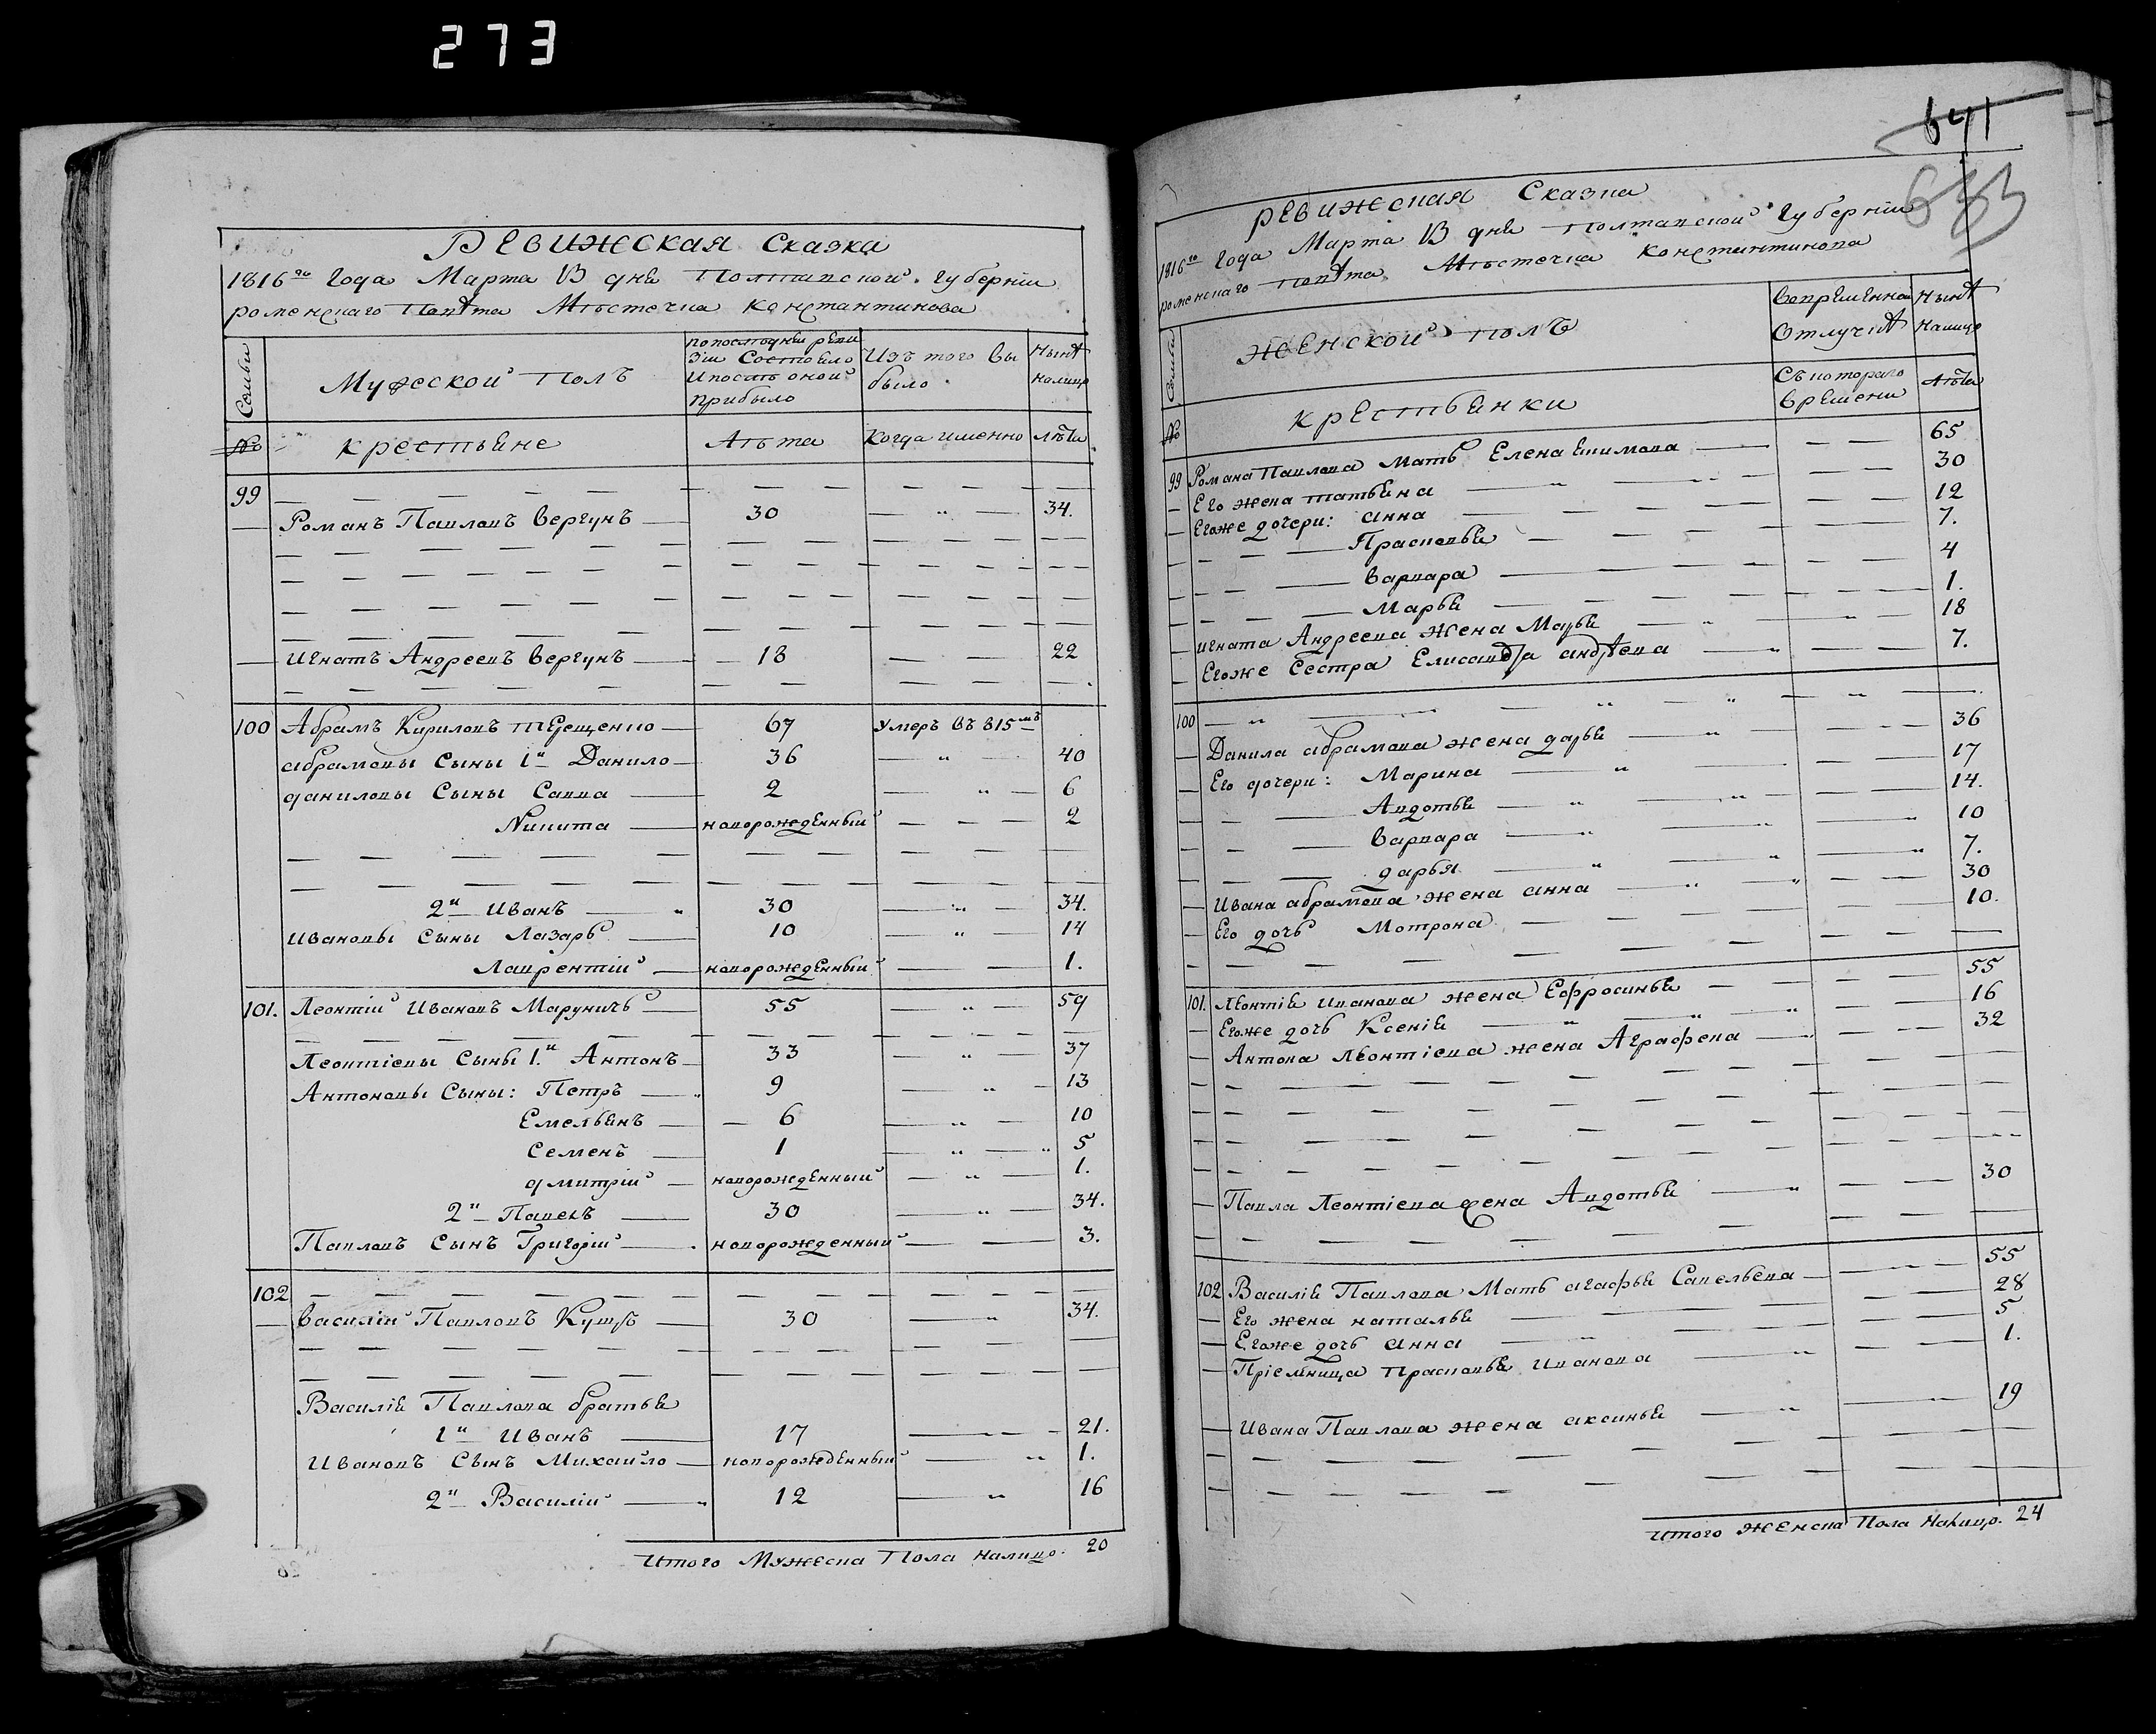 273
Ревижская Сказка
1816го Года Марта 13 дня Полтавской Губерніи
роменскаго Повѣта Мѣстечка Константинова
Семьи
Мужеской Полъ
По последней реви
зіи Состояло
И после оной
прибыло
Изъ того вы
было
Нынѣ
налицо
№
крестьяне
Лѣта
Когда именно
лѣта
99
Романъ Павловъ Вергунъ 30 34.
Игнатъ Андреевъ Вергунъ 18 22
100 Абрамъ Кириловъ терещенко 67 Умеръ въ 815мъ
абрамовы Сыны 1й Данило 36 40
даниловы Сыны Савва 2 6
Никита новорожденный 2
2й Иванъ 30 34.
Ивановы Сыны Лазарь 10 14
Лаврентій новорожденный 1.
101. Леонтій Ивановъ Маруничь 55 59
Леонтіевы Сыны 1.й Антонъ 33 37
Антоновы Сыны: Петръ 9 13
Емельянъ 6 10
Семенъ 1 5
дмитрій новорожденный 1.
2й Павелъ 30 34.
Павловъ Сынъ Григорій новорожденный 3.
102
Василій Павловъ 30 34.
Василія Павлова братья
1й Иванъ 17 21.
Ивановъ Сынъ Михайло новорожденный 1.
2й Василій 12 16
Итого Мужеска Пола налицо. 20
641
633
Ревижская Сказка
1816го Года Марта 13 дня Полтавской Губерніи
роменскаго Повѣта Мѣстечка Константинова
Семьи
Женской Полъ
Вовременной
Отлучкѣ
Нынѣ
Налицо
№
крестьянки
Съ котораго
времени
лѣта
99 Романа Павлова Мать Елена екимова 65
Его жена татьяна 30
Егоже дочери: Анна 12
Прасковья 7.
Варвара 4
Марья 1.
Игната Андреева жена Марья 18
Егоже Сестра андреева 7.
100
Данила абрамова жена дарья 36
Его дочери: Марина 17
Авдотья 14.
Варвара 10
дарья 7.
Ивана абрамова жена анна 30
Его дочь Мотрона 10.
101. Леонтія иванова жена Ефросинья 55
Егоже дочь Ксенія 16
Антона Леонтіева жена Аграфена 32
Павла Леонтіева жена Авдотья 30
102 Василія Павлова Мать агафья Савельева 55
Его жена наталья 28
Егоже дочь Анна 5.
Пріемница прасковья Иванова 1.
Ивана Павлова жена аксинья 19
Итого Женска Пола Налицо. 24